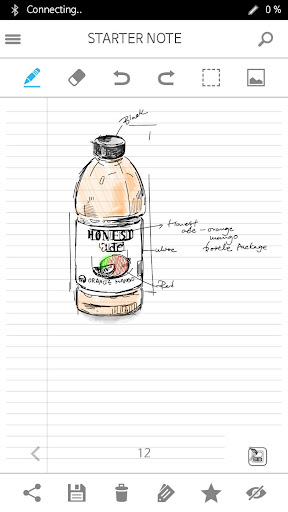 Connecting..
0%
STARTER NOTE
Black
Honest
ade - orange
mango
bottle package
white
HONEST
ade
ORANGE MANGO
Red
12